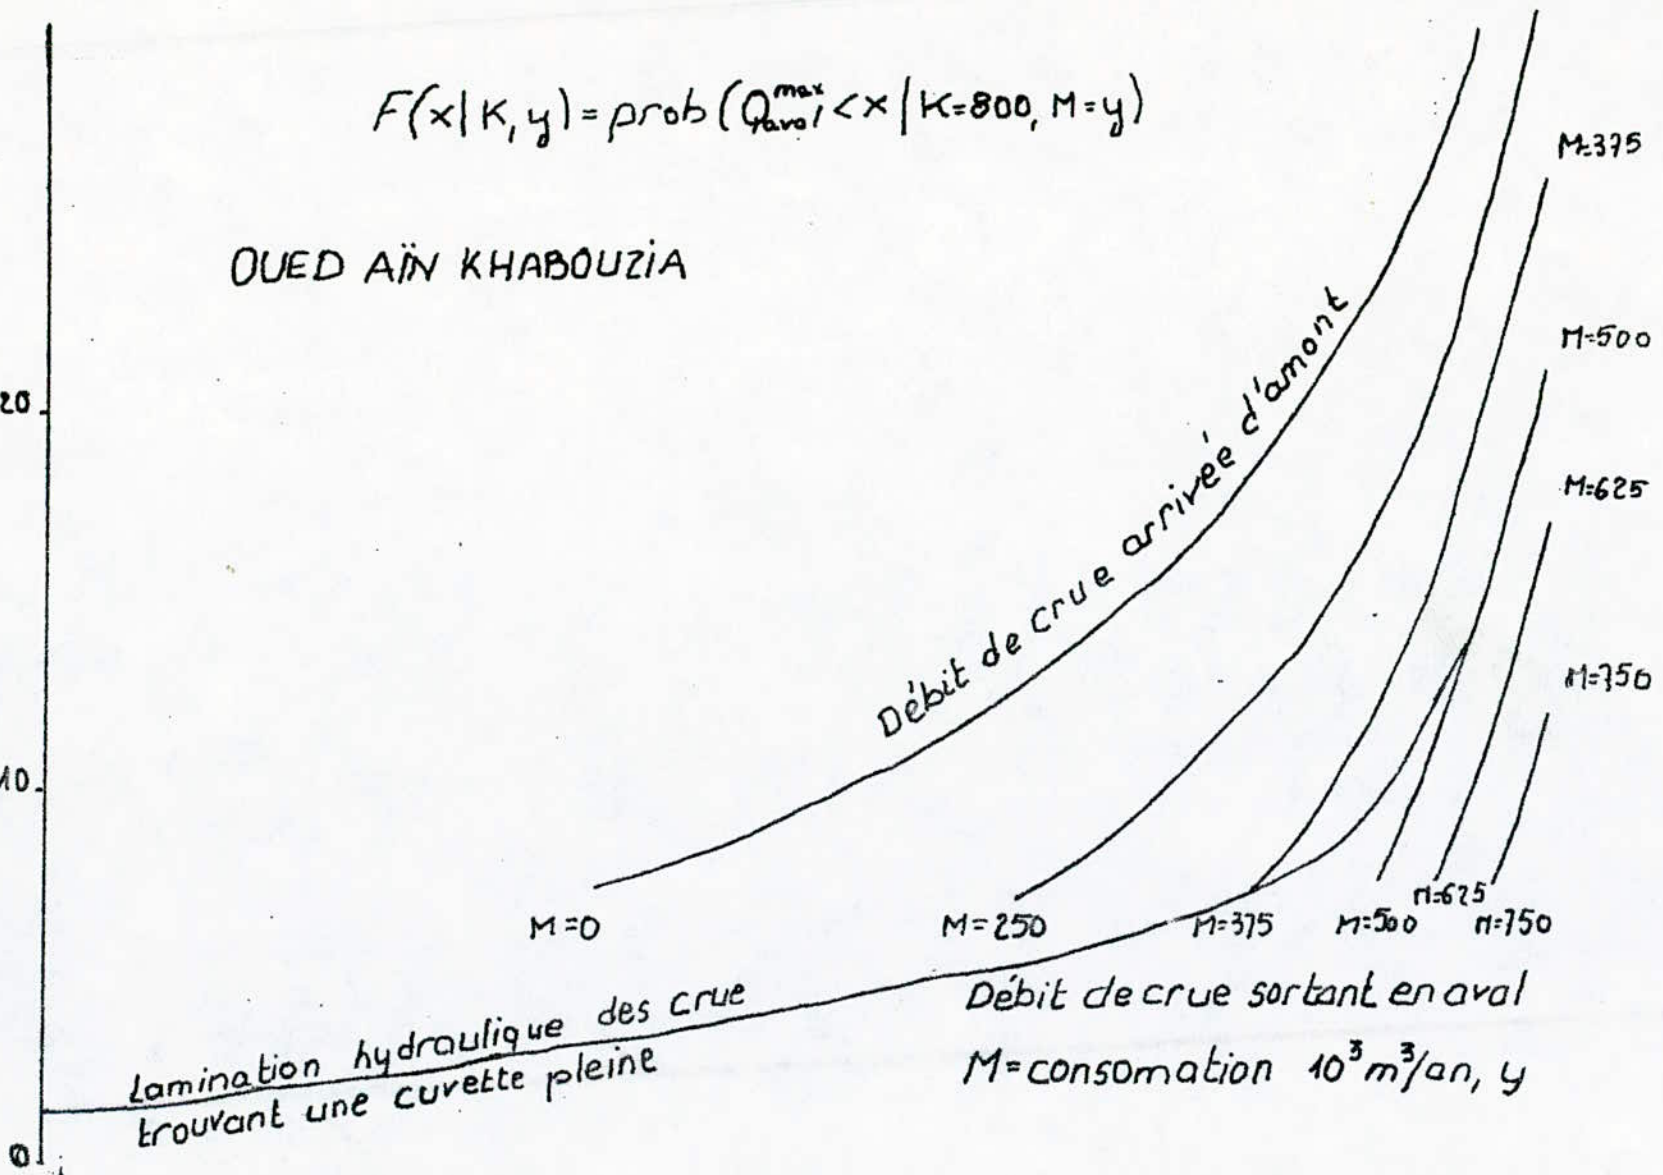 F(x|K,y)=prob(Q max aval <x|K=800, M=y)
OUED AÏN KHABOUZIA
M=375
M=500
M=625
M=750
20
10
0
Débit de crue arrivée d'amont
M=0
M=250
M=375
M=500
M=625
M=750
Lamination hydraulique des crue
trouvant une cuvette pleine
Débit de crue sortant en aval
M=consomation 10³m³/an, y